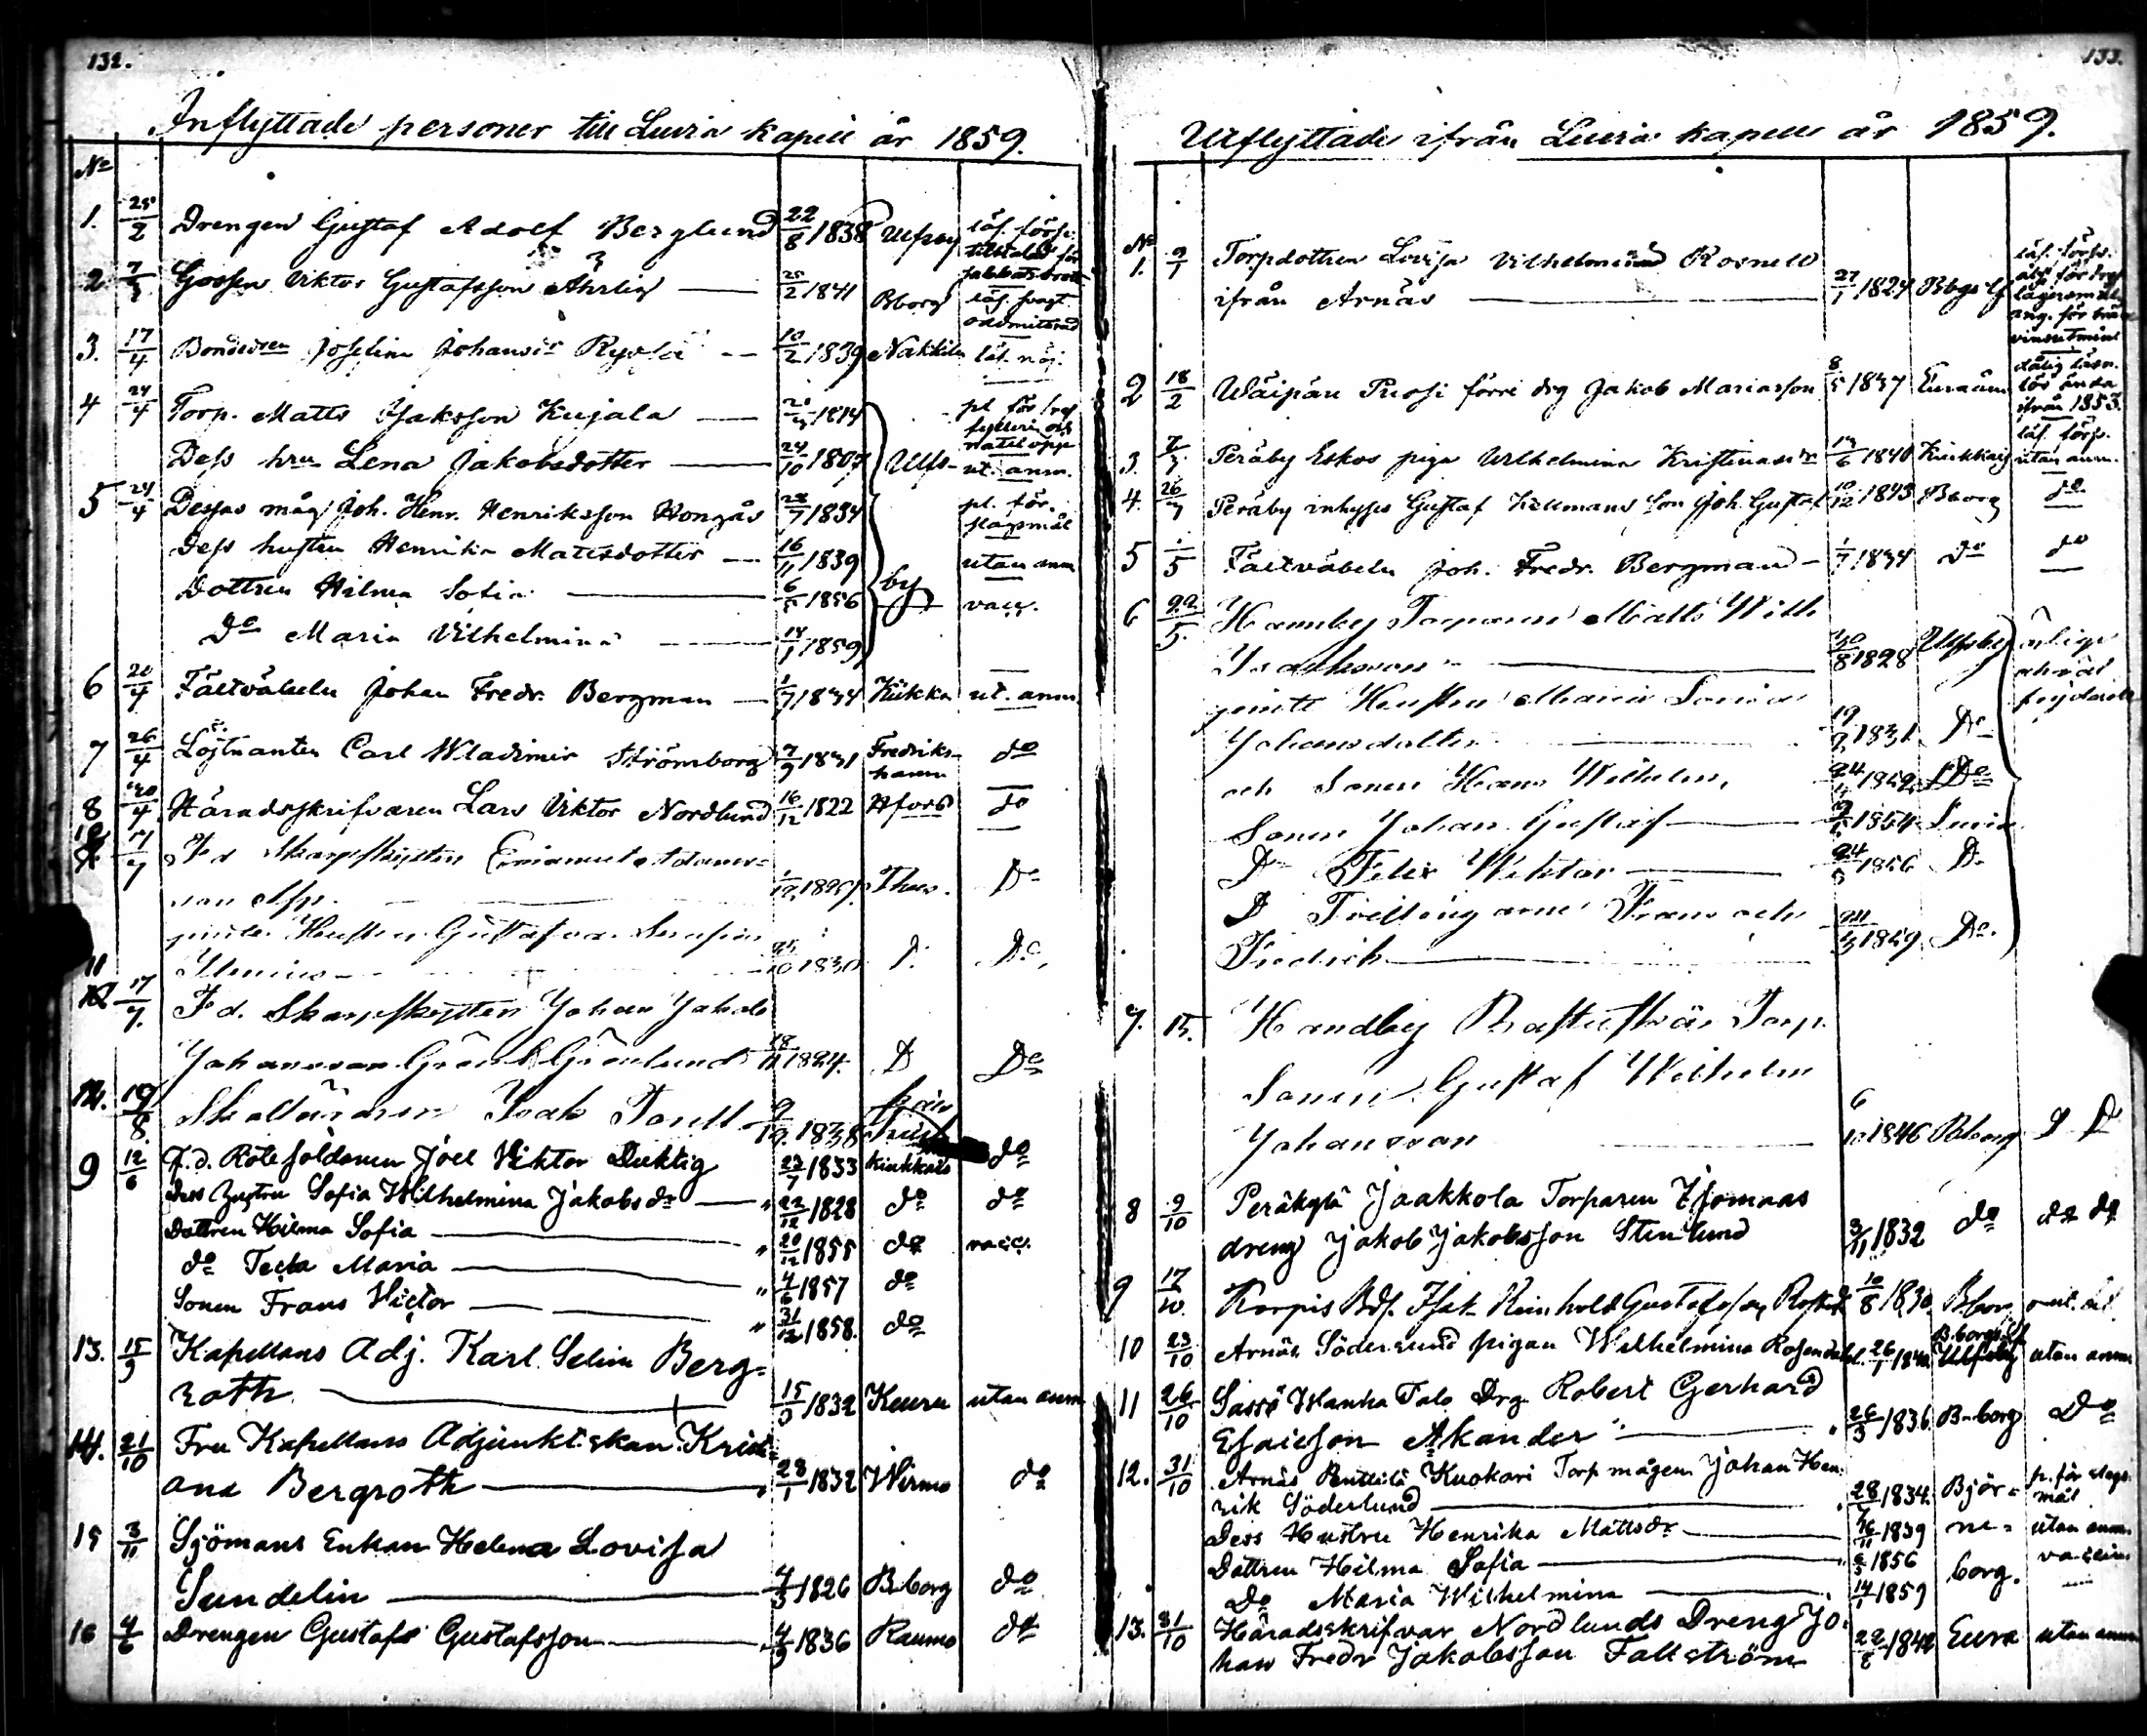 132.
Inflyttade personer till Luvia kapell år 1859.
No
1. 25/2 Drengen Gustaf Adolf Berglund 22/8 1838 Ulfsby läs. förs.
tilltalad för
sabbatsbrott
2 7/3 Gossen Viktor Gustafsson Ahrlig 25/2 1841 Bborg läs. svagt
oadmitterad
3. 17/4 Bondedren Josefina Johansdr 10/2 1839 Nakkila läs. nöj.
4 24/4 Torp. Matts Isaksson Kujala pl. för
fylleri och
Dess hru Lena Jakobsdotter 24/10 1807 Ulfs- ut. anm.
5 24/4 Dessas måg Joh. Henr. Henriksson Hongås 28/7 1834 pl. för
slagsmål
Dess hustru Henrika Mattsdotter 16/11 1839 utan anm
Dottren Hilma Sofia 6/5 1856 by vacc.
Do Maria Vilhelmina 14/1 1859
6 20/4 Fältväbeln Johan Fredr. Bergman 1/7 1834 Kiikka ut. anm.
7 26/4 Löjtnanten Carl Wladimir Strömborg 7/9 1831 Fredriks-
hamn do
8 /4 Häradsskrifvaren Lars Viktor Nordlund 16/12 1822 Hfors do
10 17/7 Fd Skarpskytten Emanuel Adams-
son Do
Hustrun Gustafva Serafia
1830 D. Do.
11 17/7. Fd. Skarpskytten Johan Jakob
Johansson Grönlund 18/11 1824. D Do
12. 19/8. Isak 9/12 1838
9 12/6 F.d. Rote soldaten Joel Viktor Duktig 27/7 1833 Kiukkais do
Dess hustru Sofia Wilhelmina Jakobsdr " 22/12 1828 do do
Dottren Hilma Sofia " 20/12 1855 do vacc.
do Tecla Maria " 4/6 1857 do
Sonen Frans Victor " 31/12 1858. do
13. 15/9 Kapellans Adj. Karl Selim Berg-
roth 15/9 1832 Keuru utan anm
14. 21/10 Fru Kapellans Adjunktskan Krist-
ana Bergroth 28/1 1832 Wirmo do
15 3/11 Sjömans Enkan Helena Lovisa
Sundelin 4/3 1826 B.borg do
16 4/6 Drengen Gustaf Gustafsson 4/9 1836 Raumo do
133.
Utflyttade ifrån Luvia kapell år 1859.
No
1. 9/1 Torpdottren Lovisa Vilhelmina Rosnell läs. förs.
ifrån Arnäs 27/1 1824 Bbgs lf
lägersmål
ang. för brän
vinsutmin
2 18/2 Jakob Mariasson 8/5 1837 Euraåm. dålig läsn.
ända
ifrån 1853.
3. 7/3 Peräby Eskos piga Wilhelmina Kristinasdr 14/6 1840 Kiukkais läs. förs.
utan anm.
4. 26/3 Peräby inhyses Gustaf Kellmans son Joh. Gustaf 10/12 1843 Bborg do
5 1/5 Fältväbeln Joh. Fredr. Bergman 1/7 1834 Do do
6 22/5. Hannby Torparen Matts With
Isaksson 30/8 1828 Ulfsby ärlig
Hustru Maria
Johansdotter 1831 Do
och Sonen Frans Wilhelm, Do
Sonen Johan Gustaf 1854 Luvia
Do Felix Wiktor 24/5 1856 Do
D Tvillingarne Frans och
Fredrich 1859 Do.
7. 15. Handby Torp.
Sonen Gustaf Wilhelm
Johansson 6/10 1846 Bborg D D
8 9/10 Peräkylä Jaakkola Torparen
dreng Jakob Jakobsson Stenlund 3/11 1832 do do do
9 17/10. Korpis Bds. Isak Reinhold Gustafsson 10/8 1830 Bbor
10 23/10 Arnäs Södersund pigan Wilhelmina Rosendahl. 26/1 1840 B.borgs lf utan anm
11 26/10 Sassi Wanha Talo Drg Robert Gerhard
Esaiesson Akander 26/3 1836 B-borg Do
12. 31/10 Arnäs Penttilä Kuokari Torp mågen Johan Hen-
rik Söderlund 28/7 1834. Björ- p. för slags
mål
Dess Hustru Henrika Mattsdr 16/11 1839 ne- utan anm.
Dottren Hilma Sofia 6/5 1856 borg. vaccin
Do Maria Wilhelmina 14/1 1859
13. 31/10 Häradsskrifvar Nordlunds Dreng Jo-
han Fredr Jakobsson Fallström 22/8 1842 Eura utan anm